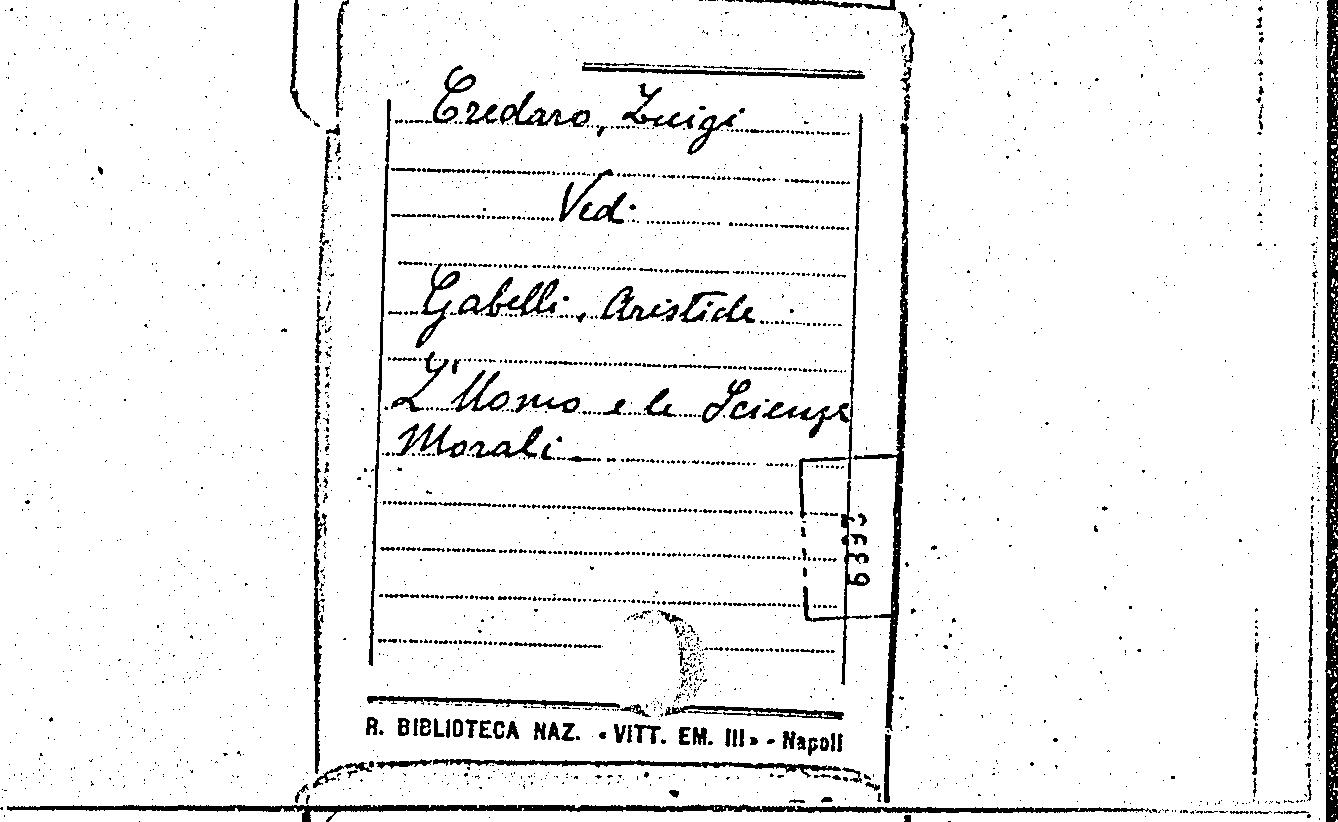 Credaro, Luigi
Vedi
Gabelli, Aristide
L'Uomo e le Scienze
Morali.
6393
R. BIBLIOTECA NAZ. «VITT. EM. III» - Napoli